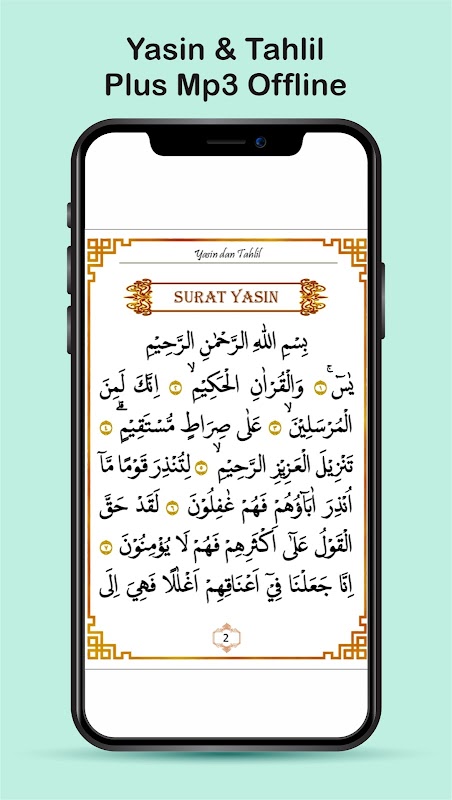 Yasin & Tahlil
Plus Mp3 Offline
Yasin dan Tahlil
SURAT YASIN
بِسْمِ اللّٰهِ الرَّحْمٰنِ الرَّحِيْمِ
يٰسۤ ۚ ١ وَالْقُرْاٰنِ الْحَكِيْمِ ۙ ٢ اِنَّكَ لَمِنَ
الْمُرْسَلِيْنَ ۙ ٣ عَلٰى صِرَاطٍ مُّسْتَقِيْمٍ ۗ ٤
تَنْزِيْلَ الْعَزِيْزِ الرَّحِيْمِ ۙ ٥ لِتُنْذِرَ قَوْمًا مَّآ
اُنْذِرَ اٰبَاۤؤُهُمْ فَهُمْ غٰفِلُوْنَ ٦ لَقَدْ حَقَّ
الْقَوْلُ عَلٰٓى اَكْثَرِهِمْ فَهُمْ لَا يُؤْمِنُوْنَ ٧
اِنَّا جَعَلْنَا فِيْٓ اَعْنَاقِهِمْ اَغْلٰلًا فَهِيَ اِلَى
2